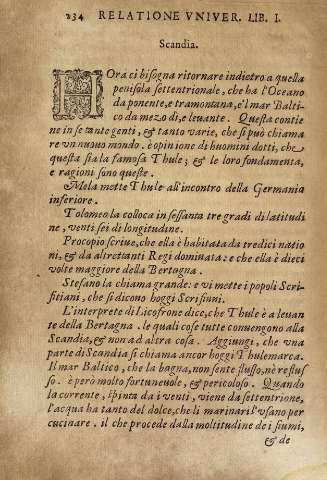 234 RELATIONE VNIVER. LIB. I.
Scandia.
HOra ci bisogna ritornare indietro a quella
penisola settentrionale, che ha l'Oceano
da ponente, e tramontana, e'l mar Balti-
co da mezo dì, e leuante. Questa contie
ne in se tante genti, & tanto varie, che si può chiama
re vn nuouo mondo. è opinione di huomini dotti, che
questa sia la famosa Thule; & le loro fondamenta,
e ragioni sono queste.
Mela mette Thule all'incontro della Germania
inferiore.
Tolomeo la colloca in sessanta tre gradi di latitudi
ne, venti sei di longitudine.
Procopio scriue, che ella è habitata da tredici natio
ni, & da altrettanti Regi dominata: e che ella è dieci
volte maggiore della Bertagna.
Stefano la chiama grande: e vi mette i popoli Scri-
fitiani, che si dicono hoggi Scrifinni.
L'interprete di Licofrone dice, che Thule è a leuan
te della Bertagna. le quali cose tutte conuengono alla
Scandia, & non ad altra cosa. Aggiungi, che vna
parte di Scandia si chiama ancor hoggi Thulemarca.
Il mar Baltico, che la bagna, non sente flusso, nè reflus
so. è però molto fortuneuole, & pericoloso. Quando
la corrente, spinta da i venti, viene da settentrione,
l'acqua ha tanto del dolce, che li marinari l'vsano per
cucinare. il che procede dalla moltitudine de i fiumi,
& de